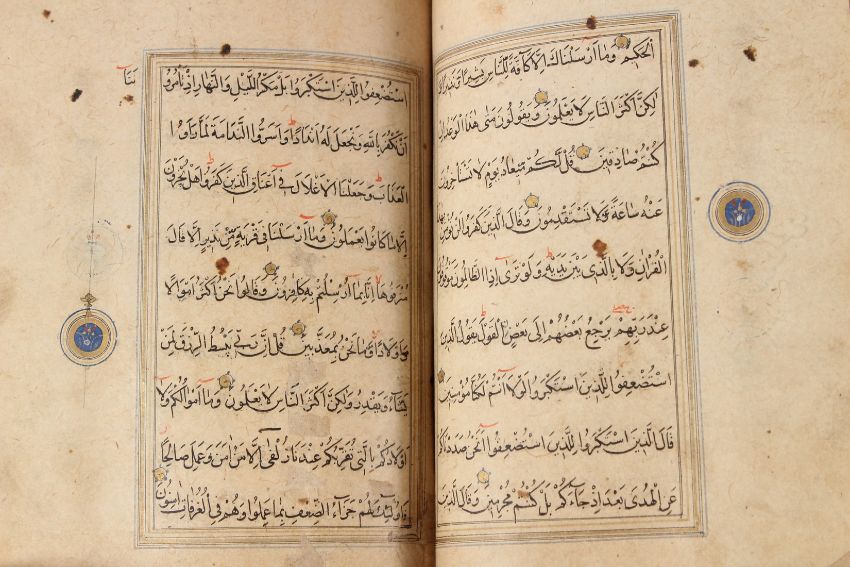 الحكيم وما أرسلناك إلا كافة للناس بشيرا ونذيرا و
لكن أكثر الناس لا يعلمون ويقولون متى هذا الوعد إن
كنتم صادقين قل لكم ميعاد يوم لا تستأخرون
عنه ساعة ولا تستقدمون وقال الذين كفروا لن نؤمن بهذا
القرآن ولا بالذي بين يديه ولو ترى إذ الظالمون موقوفون
عند ربهم يرجع بعضهم إلى بعض القول يقول الذين
استضعفوا للذين استكبروا لولا أنتم لكنا مؤمنين
قال الذين استكبروا للذين استضعفوا أنحن صددناكم
عن الهدى بعد إذ جاءكم بل كنتم مجرمين وقال الذين
استضعفوا للذين استكبروا بل مكر الليل والنهار إذ تأمرو ننا
أن نكفر بالله ونجعل له أندادا وأسروا الندامة لما رأوا
العذاب وجعلنا الأغلال في أعناق الذين كفروا هل يجزون
إلا ما كانوا يعملون وما أرسلنا في قرية من نذير إلا قال
مترفوها إنا بما أرسلتم به كافرون وقالوا نحن أكثر أموالا
وأولادا وما نحن بمعذبين قل إن ربي يبسط الرزق لمن
يشاء ويقدر ولكن أكثر الناس لا يعلمون وما أموالكم ولا
أولادكم بالتي تقربكم عندنا زلفى إلا من آمن وعمل صالحا
فأولئك لهم جزاء الضعف بما عملوا وهم في الغرفات آمنون